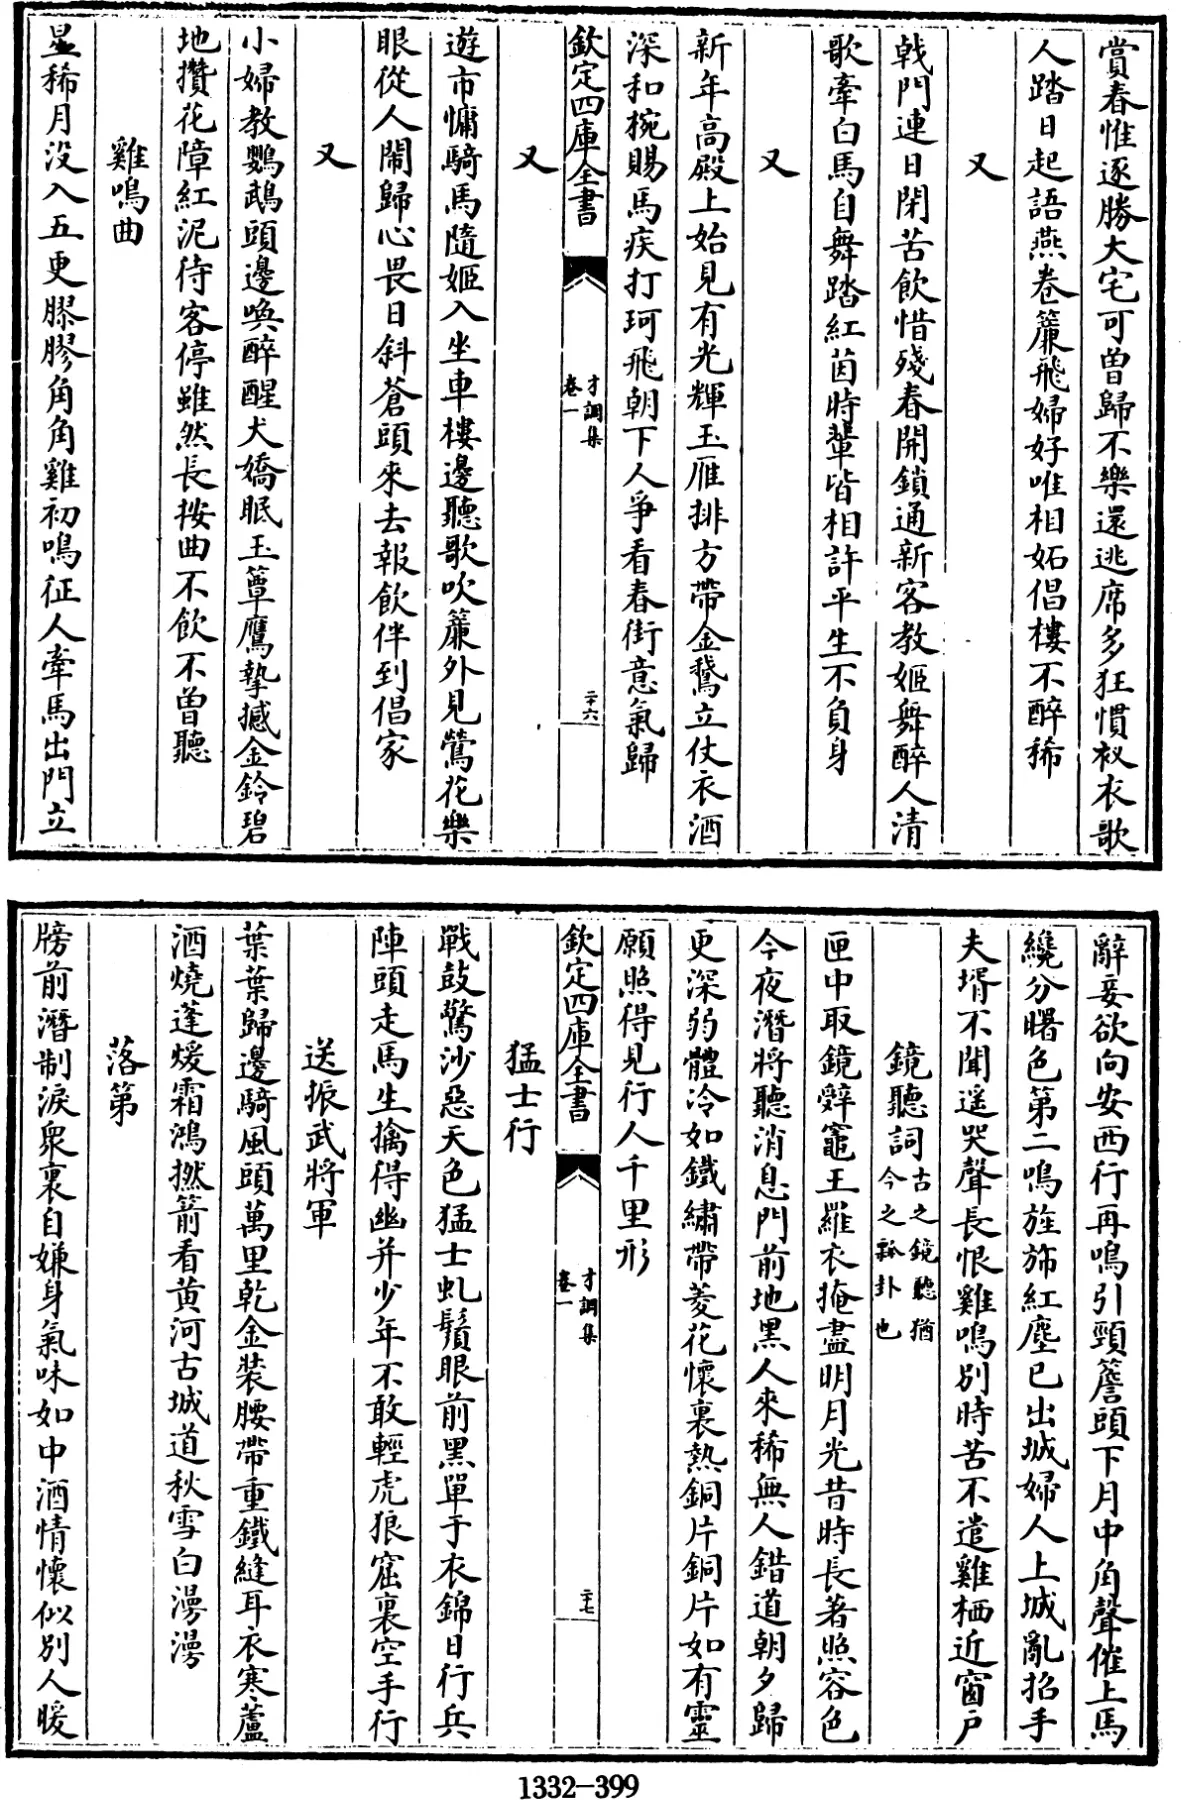 賞春惟逐勝大宅可曽歸不樂還逃席多狂慣衩衣歌
人踏日起語燕卷簾飛婦好唯相妬倡樓不醉稀
又
戟門連日閉苦飲惜殘春開鎖通新客教姬舞醉人清
歌牽白馬自舞踏紅茵時輩皆相許平生不負身
又
新年高殿上始見有光輝玉雁排方帶金鵞立仗衣酒
深和椀賜馬疾打珂飛朝下人爭看春街意氣歸
欽定四庫全書
才調集
卷一
二十六
又
遊市慵騎馬隨姬入坐車樓邊聽歌吹簾外見鶯花樂
眼從人鬧歸心畏日斜蒼頭來去報飲伴到倡家
又
小婦教鸚鵡頭邊喚醉醒犬嬌眠玉簟鷹摯撼金鈴碧
地攢花障紅泥待客停雖然長按曲不飲不曽聽
雞鳴曲
星稀月没入五更膠膠角角雞初鳴征人牽馬出門立
辭妾欲向安西行再鳴引頸簷頭下月中角聲催上馬
纔分曙色第二鳴旌斾紅塵已出城婦人上城亂招手
夫壻不聞遥哭聲長恨雞鳴别時苦不遣雞栖近窗户
鏡聽詞
古之鏡聽猶
今之瓢卦也
匣中取鏡辭竈王羅衣掩盡明月光昔時長著照容色
今夜潛將聽消息門前地黑人來稀無人錯道朝夕歸
更深弱體冷如鐵繡帶菱花懷裏熱銅片銅片如有靈
願照得見行人千里形
欽定四庫全書
才調集
卷一
二十七
猛士行
戰鼔驚沙惡天色猛士虬鬚眼前黑單于衣錦日行兵
陣頭走馬生擒得幽并少年不敢輕虎狼窟裏空手行
送振武將軍
葉葉歸邊騎風頭萬里乾金装腰帶重鐵縫耳衣寒蘆
酒燒蓬煖霜鴻撚箭看黄河古城道秋雪白漫漫
落第
牓前潛制淚衆裏自嫌身氣味如中酒情懷似别人暖
1332-399